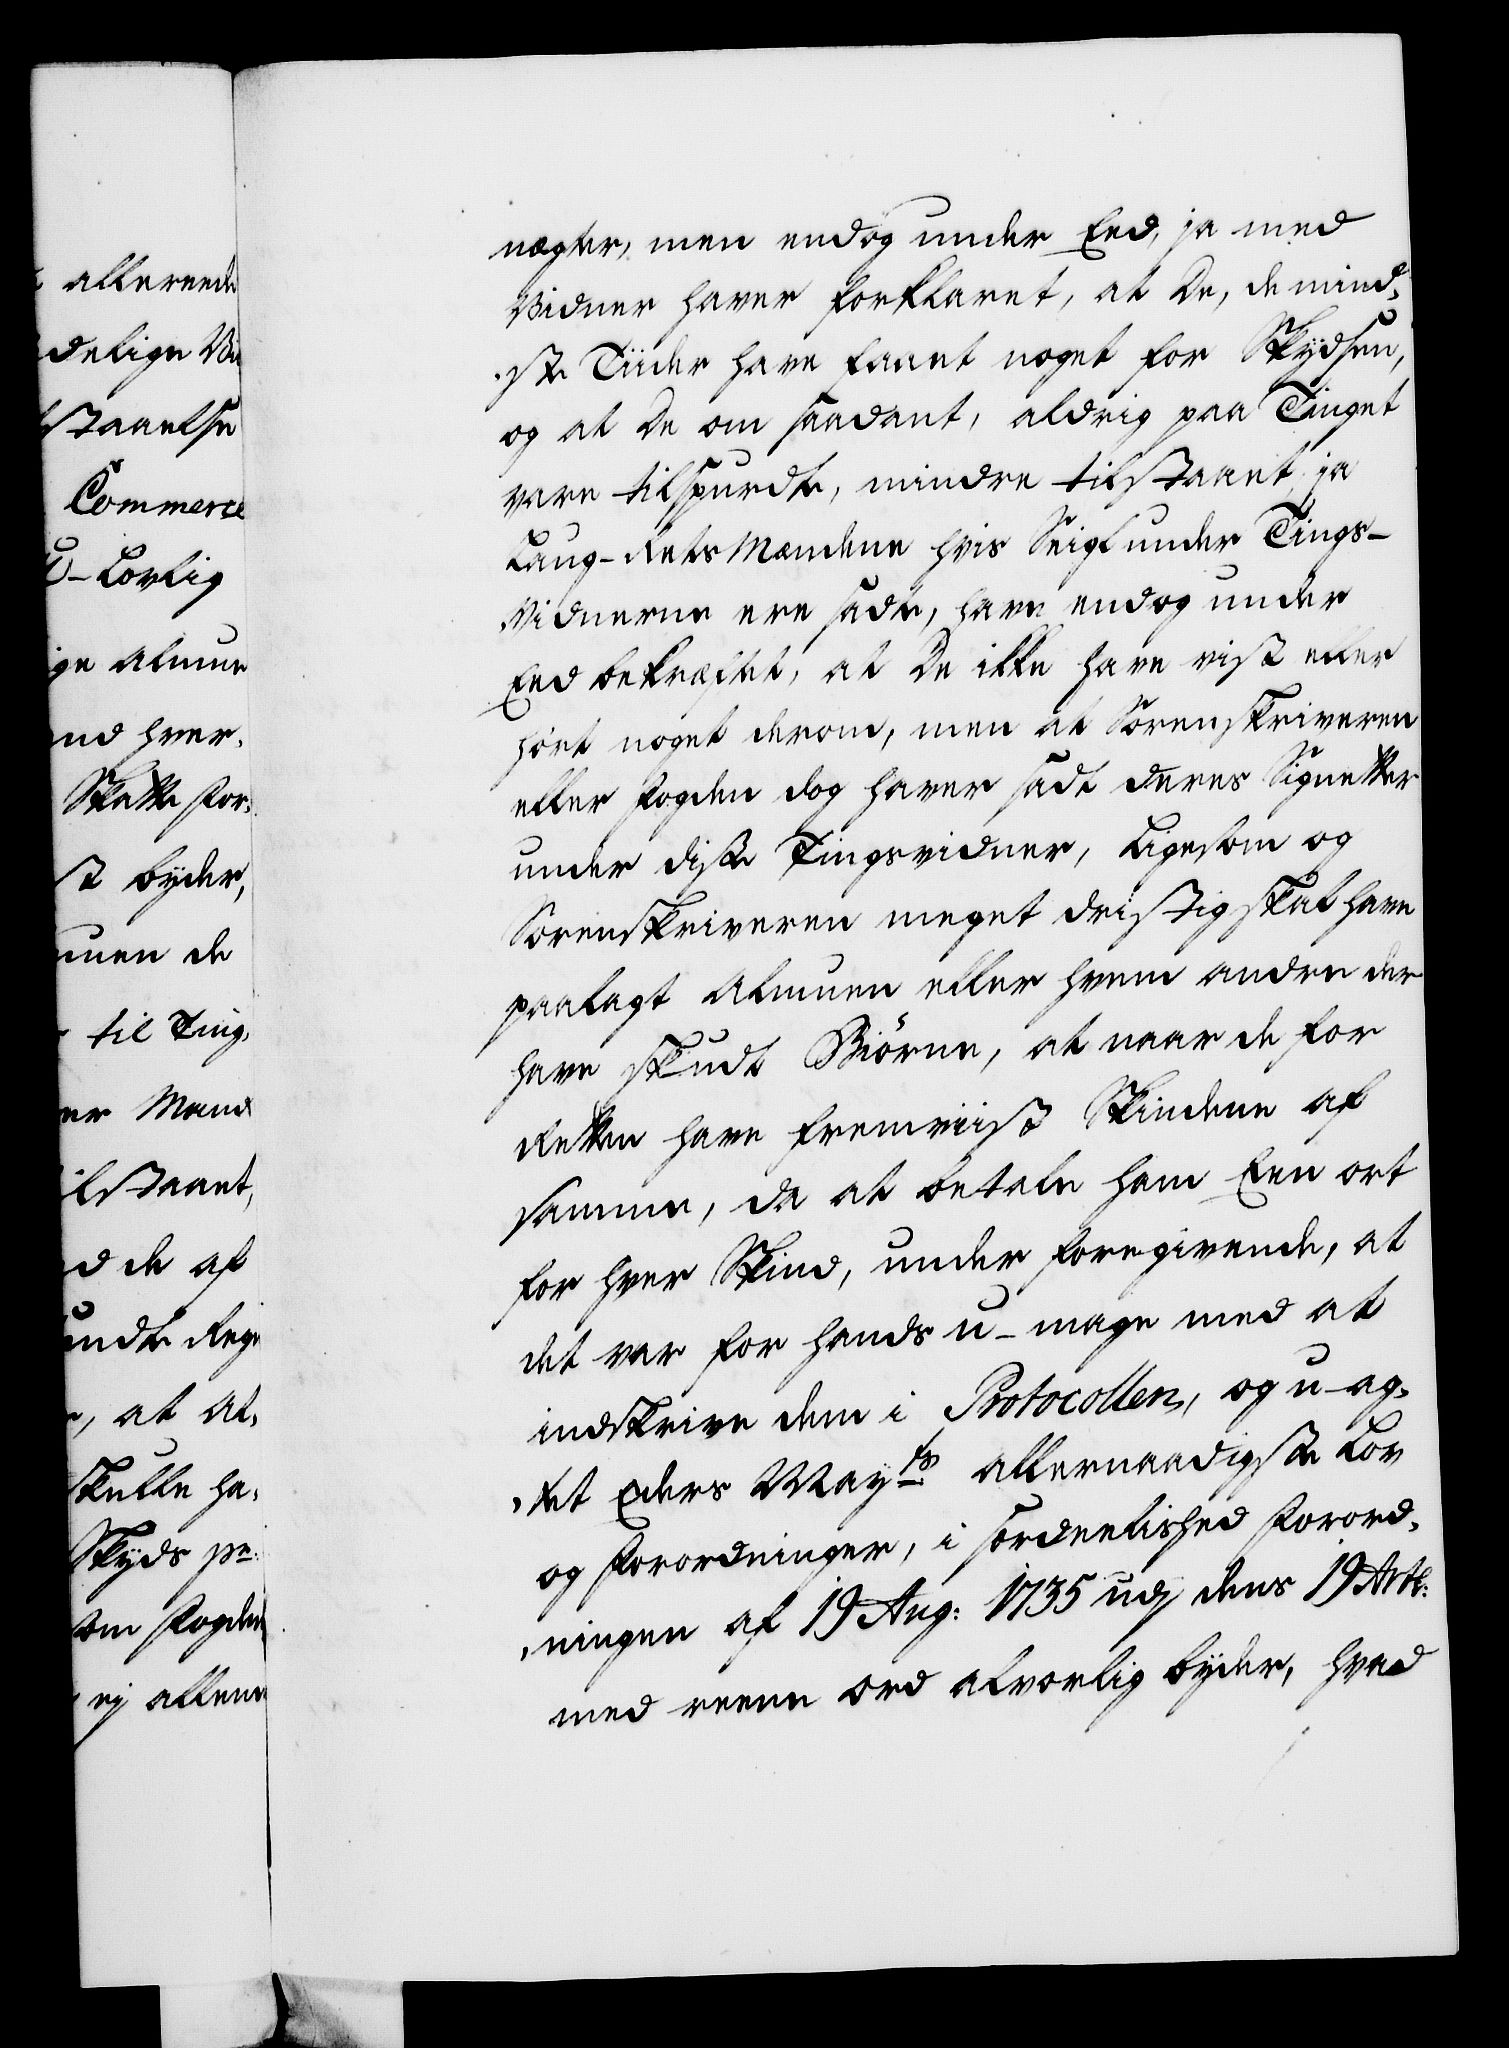 allereede
delige Vi
staaelse
Commerce
U-Lovlig
ige almue
nd hver,
Skatte for,
st byder,
muen de
til Ting,
er Mand
ilstaaet,
d de af
undte Rege
, at al,
skulle ha,
Skyds pe:
om Fogden
ej allene
nægter, men endog under Eed, ja med
Vidner haver forklaret, at De, de mind,
,ste Tiider have faaet noget for Skydsen,
og at De om saadant, aldrig paa Tinget
vare tilspurdte, mindre tilstaaet, ja
Laug-RetsMændene hvis Seigl under Tings-
Vidnerne ere sadte, have endog under
Eed bekræftet, at De ikke have vist eller
hört noget derom, men at Sorenskriveren
eller Fogden dog haver sadt deres Signetter
under disse Tingsvidner, Ligesom og
Sorenskriveren meget dristig skal have
paalagt Almuen eller hvem andre der
have skudt Biörne, at naar de for
Retten have fremviist Skindene af
samme, da at betale ham Een ort
for hver Skind, under foregivende, at
det var for hands u-mage med at
indskrive dem i Protocollen, og u-ag,
,tet Eders Mayts allernaadigste Lov
og Forordninger, i særdeelished Forord,
,ningen af 19 Aug: 1735 udj dens 19 Artl:
med reene ord alvorlig byder, hvad